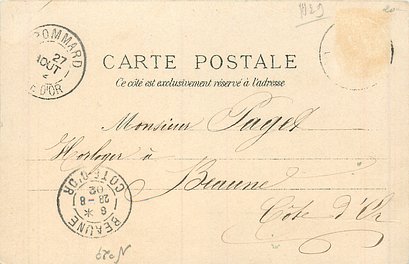 POMMARD
27
AOUT
C. D'OR
CARTE POSTALE
Ce côté est exclusivement réservé à l'adresse
Monsieur Paget
Horloger à
Beaune
Côte d'Or
BEAUNE
6 *
28 - 8
02
COTE-D'OR